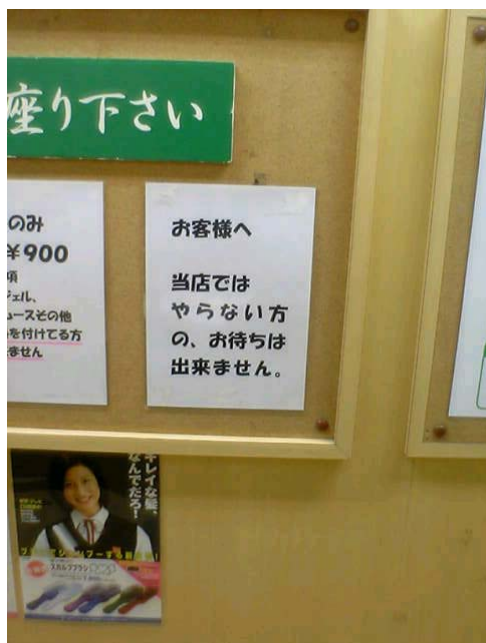 座り下さい
のみ
¥900
項
ジェル、
ースその他
を付けてる方
ません
お客様へ
当店では
やらない方
の、お待ちは
出来ません。
キレイな髪、
なんでだろ!
スカルプブラシ